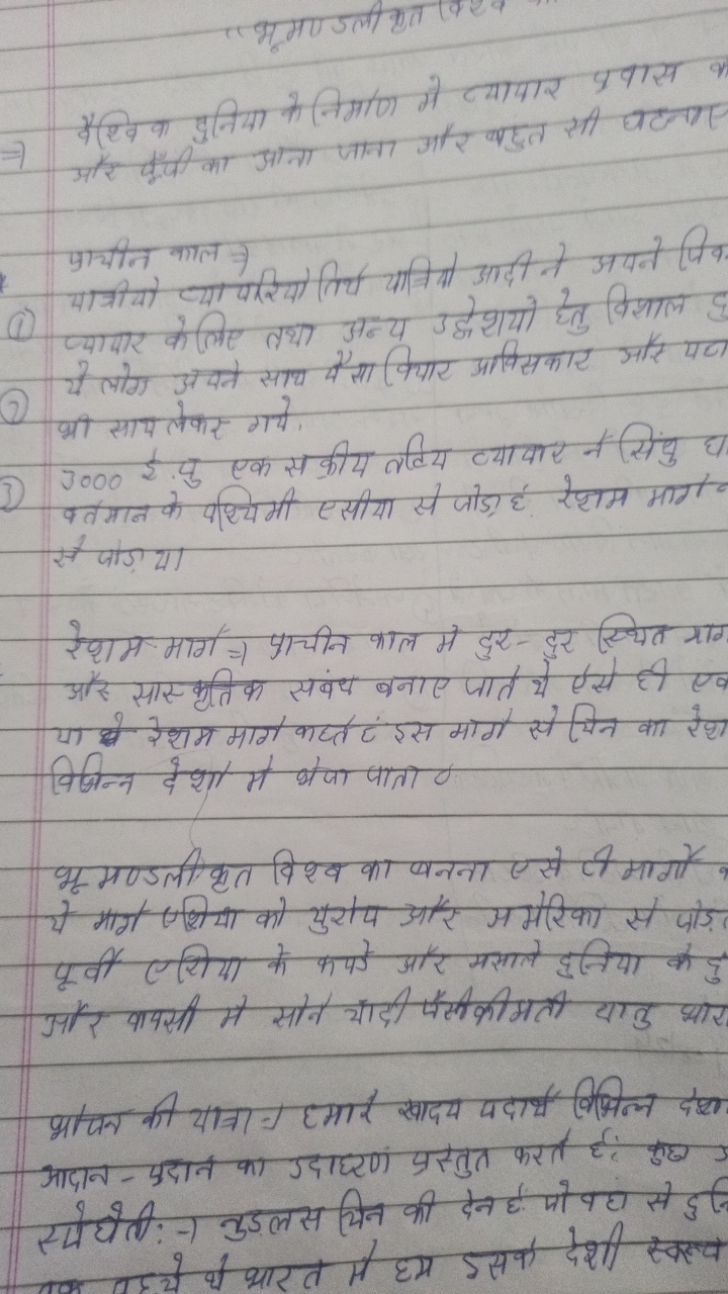 "भूमण्डलीकृत विश्व का
⇒ वैश्विक दुनिया के निर्माण मे व्यापार प्रवास
और पूँजी का आना जाना और बहुत सी घटनाए
प्राचीन काल ⇒
① यात्रीयो व्यापरियो तिर्थ यात्रियो आदी ने अपने
व्यापार के लिए तथा अन्य उद्देशयो हेतु विशाल
② ये लोग अपने साथ पैसा विचार अविसकार और
भी साथ लेकर गये.
③ 3000 ई.पु एक सक्रीय तटिय व्यापार ने सिंधु घा
वर्तमान के पश्चिमी एसीया से जोड़ा है. रेशम मार्ग
से जोड़ा था
रेशम मार्ग ⇒ प्राचीन काल मे दुर-दुर स्थित
और सांस्कृतिक संबंध बनाए जाते थे ऐसे ही एक
था रेशम मार्ग कहते है इस मार्ग से चिन का रेश
विभिन्न देशो मे भेजा जाता है
भूमण्डलीकृत विश्व का बनना एसे ही मार्गो
ये मार्ग एशिया को युरोप और अमेरिका से जोड़
पूर्वी एशिया के कपडे और मसाले दुनिया के दु
और वापसी मे सोने चादी जैसी कीमती धातु भार
भोजन की यात्रा ⇒ हमारे खादय पदार्थ विभिन्न देश
आदान-प्रदान का उदाहरण प्रस्तुत करते है: कुछ
स्पेघेती: ⇒ नुडलस चिन की देन है. जो वहा से दुनि
तक पहुचे थे भारत मे हम इसके देशी स्वरूप